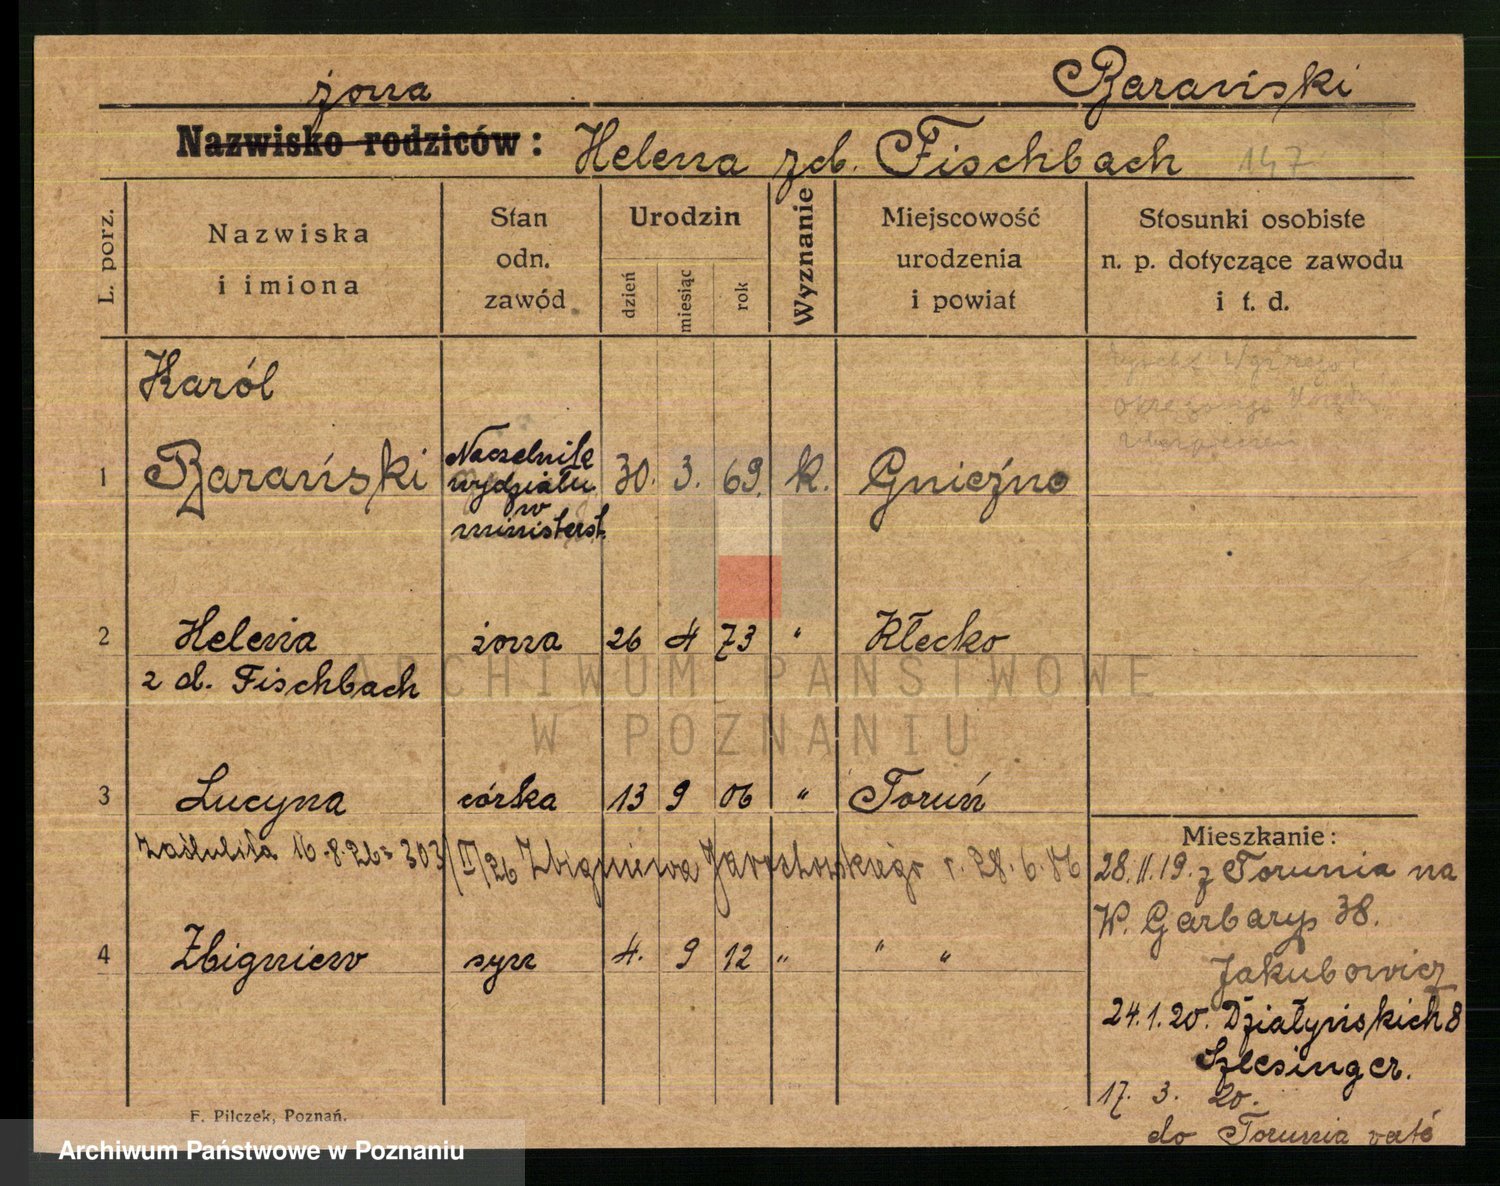 Barański
żona
Nazwisko rodziców: Helena zd. Fischbach 147
L. porz.
Nazwiska
i imiona
Stan
odn.
zawód
Urodzin
dzień
miesiąc
rok
Wyznanie
Miejscowość
urodzenia
i powiat
Stosunki osobiste
n. p. dotyczące zawodu
i t. d.
Karól
1 Barański Naczelnik wydziału w ministerst. 30. 3. 69. k. Gniezno
2 Helena żona 26 4 73 " Kłecko
z d. Fischbach
3 Lucyna córka 13 9 06 " Toruń
zaślubiła 16.8.26 = 303/II/26 Zbigniewa r. 28.6.86
4 Zbigniew syn 4. 9 12 " " "
Mieszkanie:
28.11.19. z Torunia na
W. Garbary 38.
Jakubowicz
24.1.20. Działyńskich 8
Szlesinger.
17. 3. 20.
do Torunia
F. Pilczek, Poznań.
ARCHIWUM PAŃSTWOWE
W POZNANIU
Archiwum Państwowe w Poznaniu